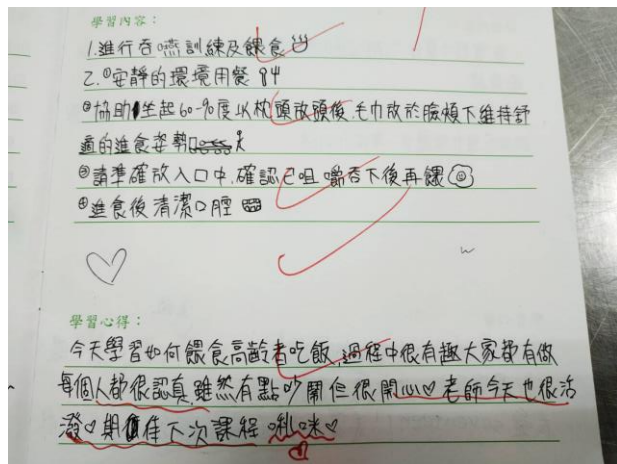 學習內容：
1.進行吞嚥訓練及餵食
2.①安靜的環境用餐
②協助坐起60-90度以枕頭放頭後，毛巾放於臉頰下維持舒
適的進食姿勢
③請準確放入口中，確認已咀嚼吞下後再餵
④進食後清潔口腔
學習心得：
今天學習如何餵食高齡者吃飯，過程中很有趣大家都有做
每個人都很認真，雖然有點吵鬧但很開心♡老師今天也很活
潑♡期待下次課程啾咪♡